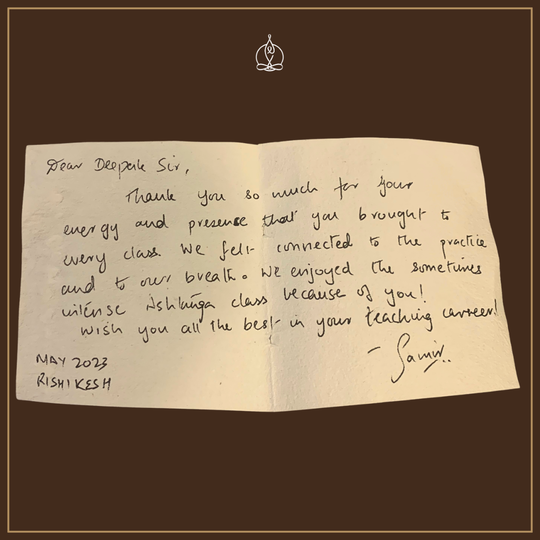 Dear Deepak Sir,
Thank you so much for your
energy and presence that you brought to
every class. We felt connected to the practice
and to our breath. We enjoyed the sometimes
intense Ashtanga class because of you!
Wish you all the best in your teaching carreer!
- Samir..
MAY 2023
RISHIKESH